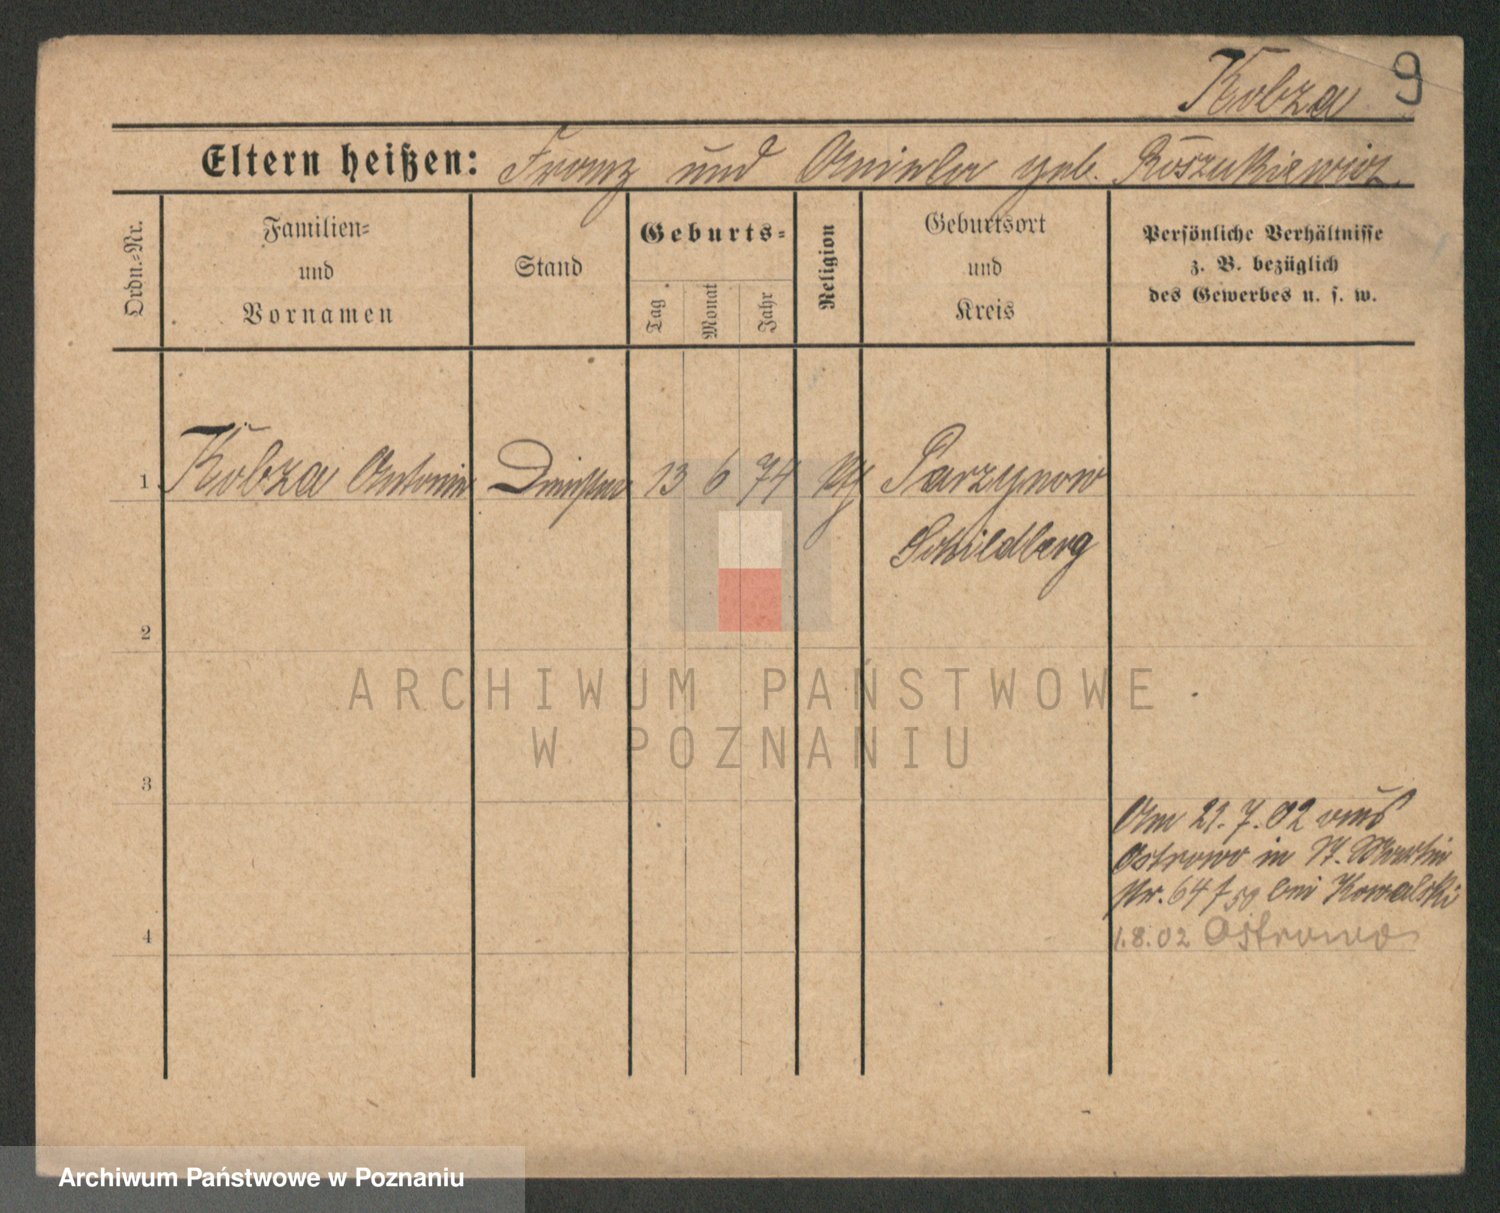 Kobza 9
Eltern heißen: Franz und Aniela geb. Roszukiewicz
Ordn.-Nr.
Familien-
und
Vornamen
Stand
Geburts-
Tag
Monat
Jahr
Religion
Geburtsort
und
Kreis
Persönliche Verhältnisse
z. B. bezüglich
des Gewerbes u. s. w.
1 Kobza Antonie 13 6 74 Parzynow
Schildberg
2
3
4
Am 21.7.02 aus
Ostrowo in St. Martin
Nr. 64 bei Kowalski
1.8.02 Ostrowo
ARCHIWUM PAŃSTWOWE
W POZNANIU
Archiwum Państwowe w Poznaniu